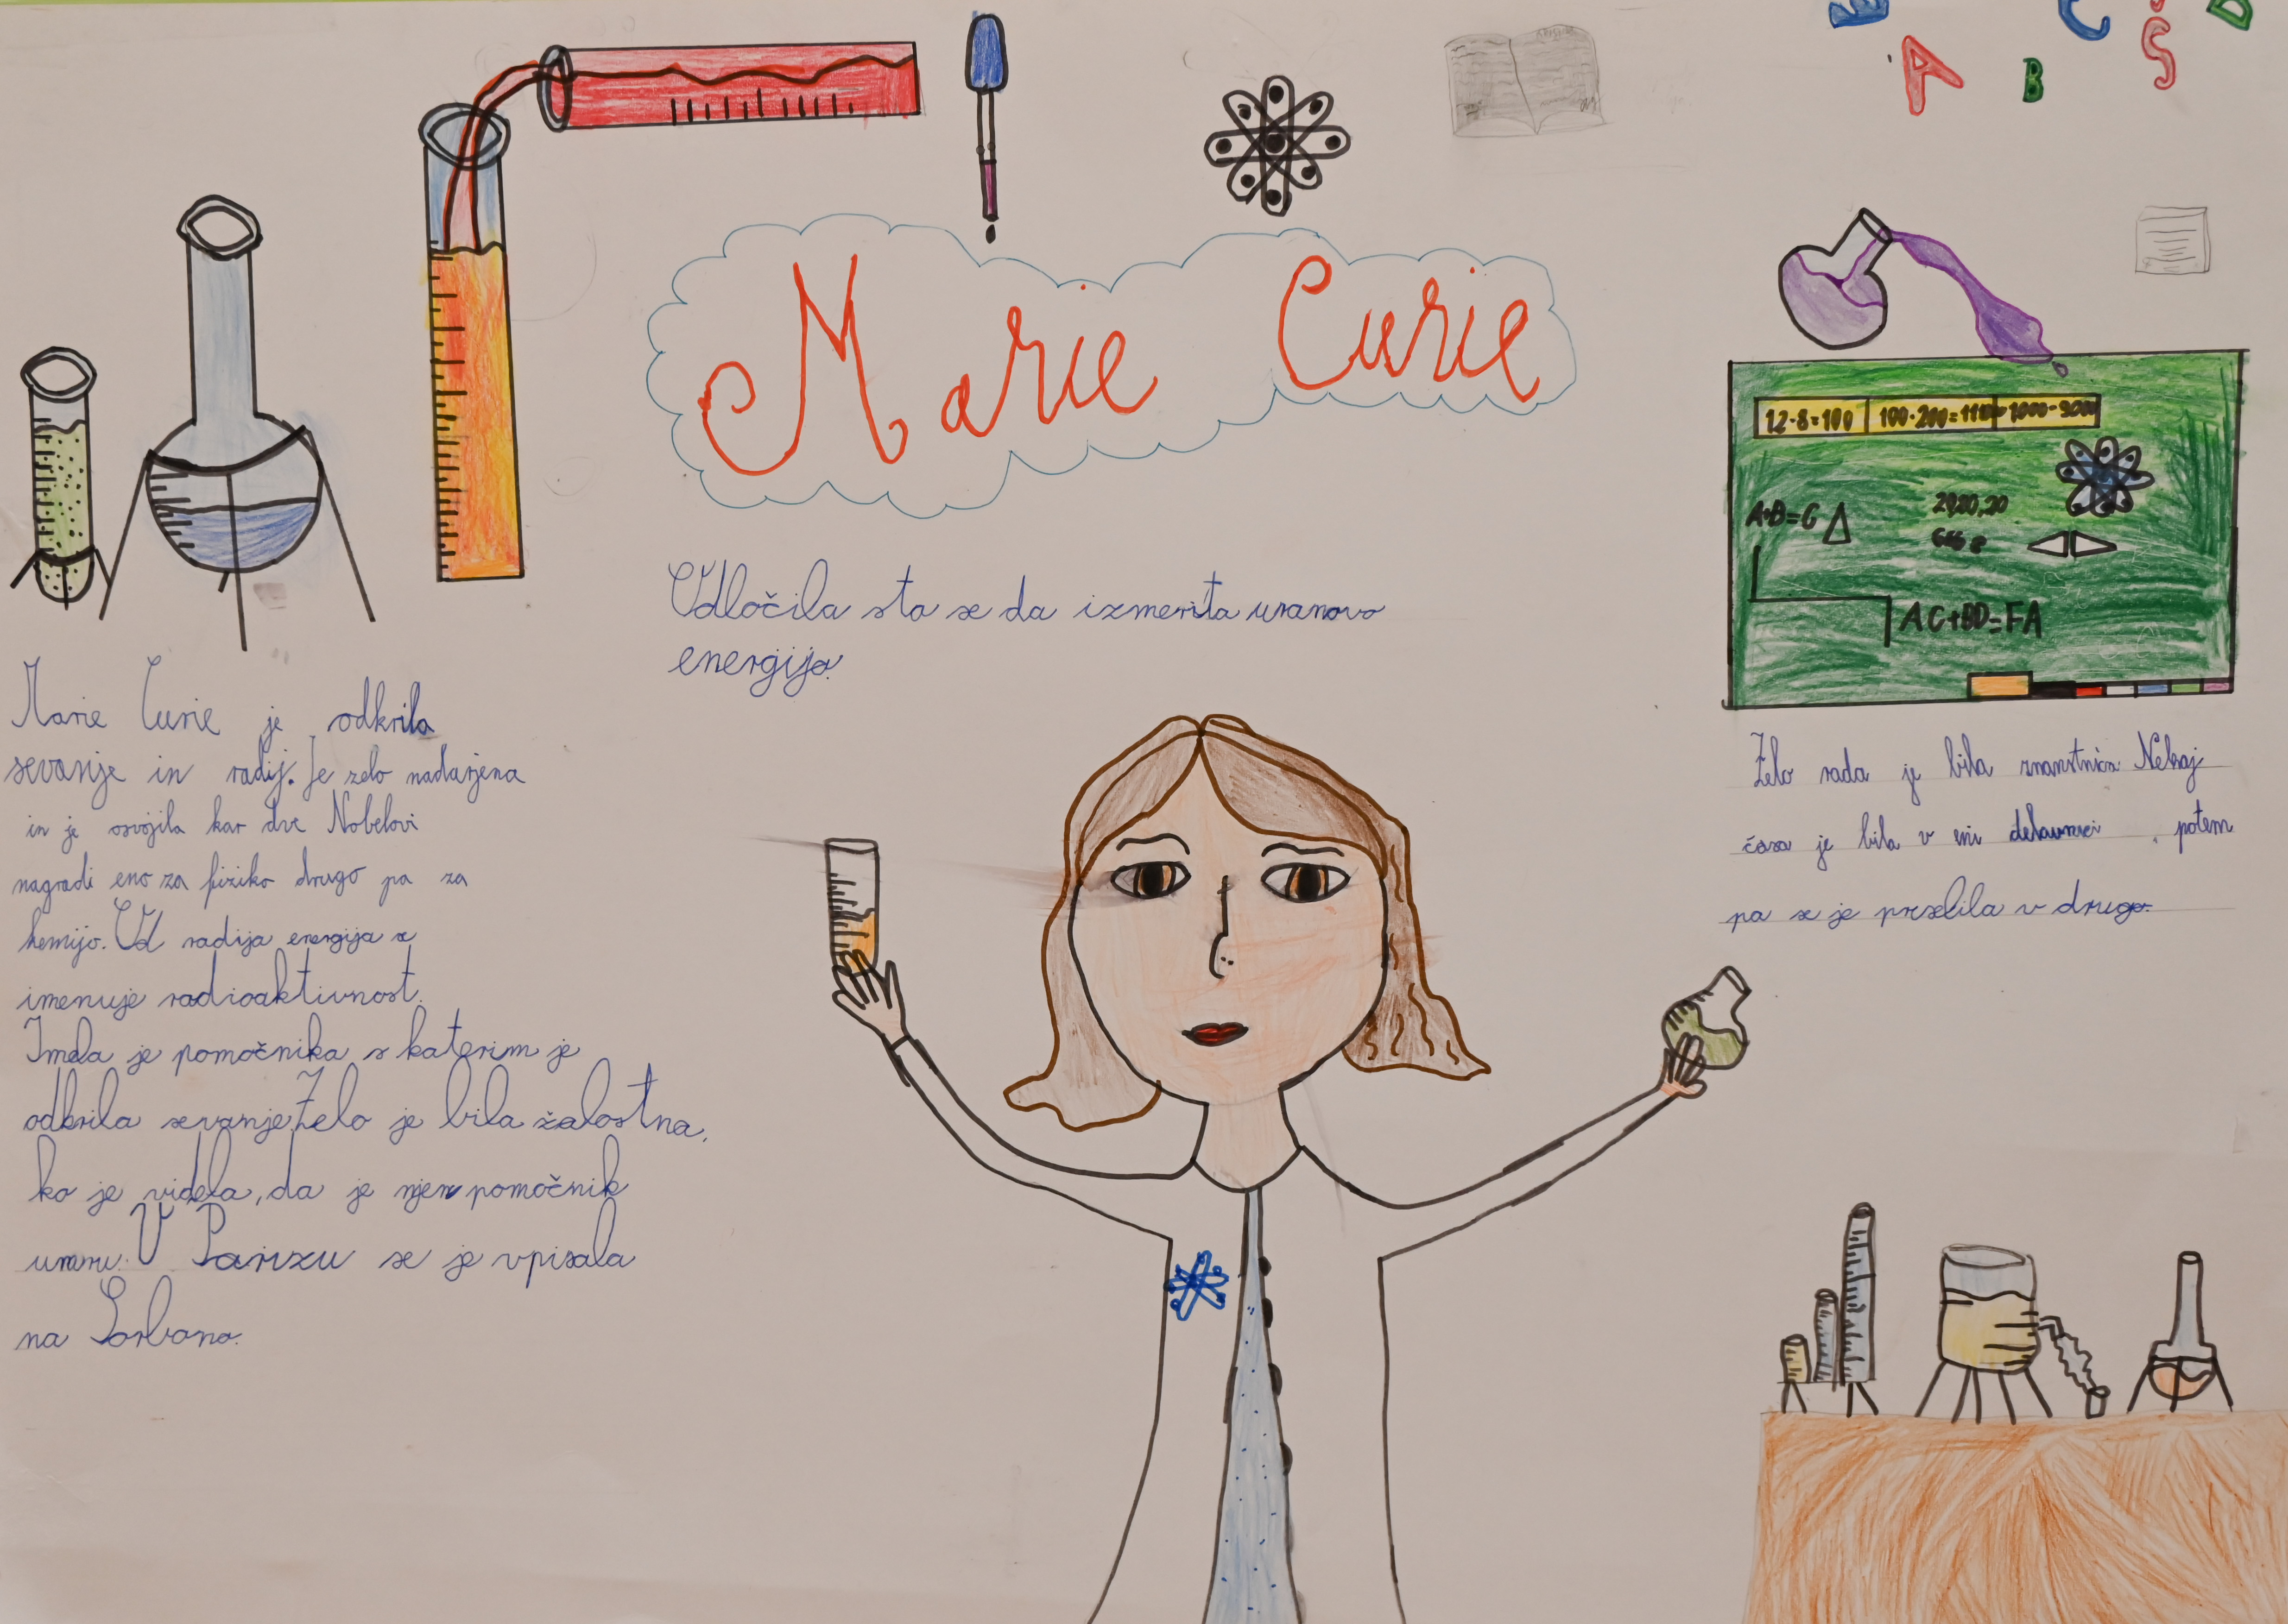 A B C Š
Marie Curie
12·8=100 100·200=1110 1000-9000
A+B=C
2920,20
AC+BD=FA
Odločila sta se da izmerita uranovo
energijo.
Marie Curie je odkrila
sevanje in radij. Je zelo nadarjena
in je osvojila kar dve Nobelovi
nagradi eno za fiziko drugo pa za
kemijo. Od radija energija se
imenuje radioaktivnost.
Imela je pomočnika s katerim je
odkrila sevanje. Zelo je bila žalostna,
ko je videla, da je njen pomočnik
umru. V Parizu se je vpisala
na Sorbono.
Zelo rada je bila znanstnica Nekaj
časa je bila v eni delavnici, potem
pa se je preselila v drugo.